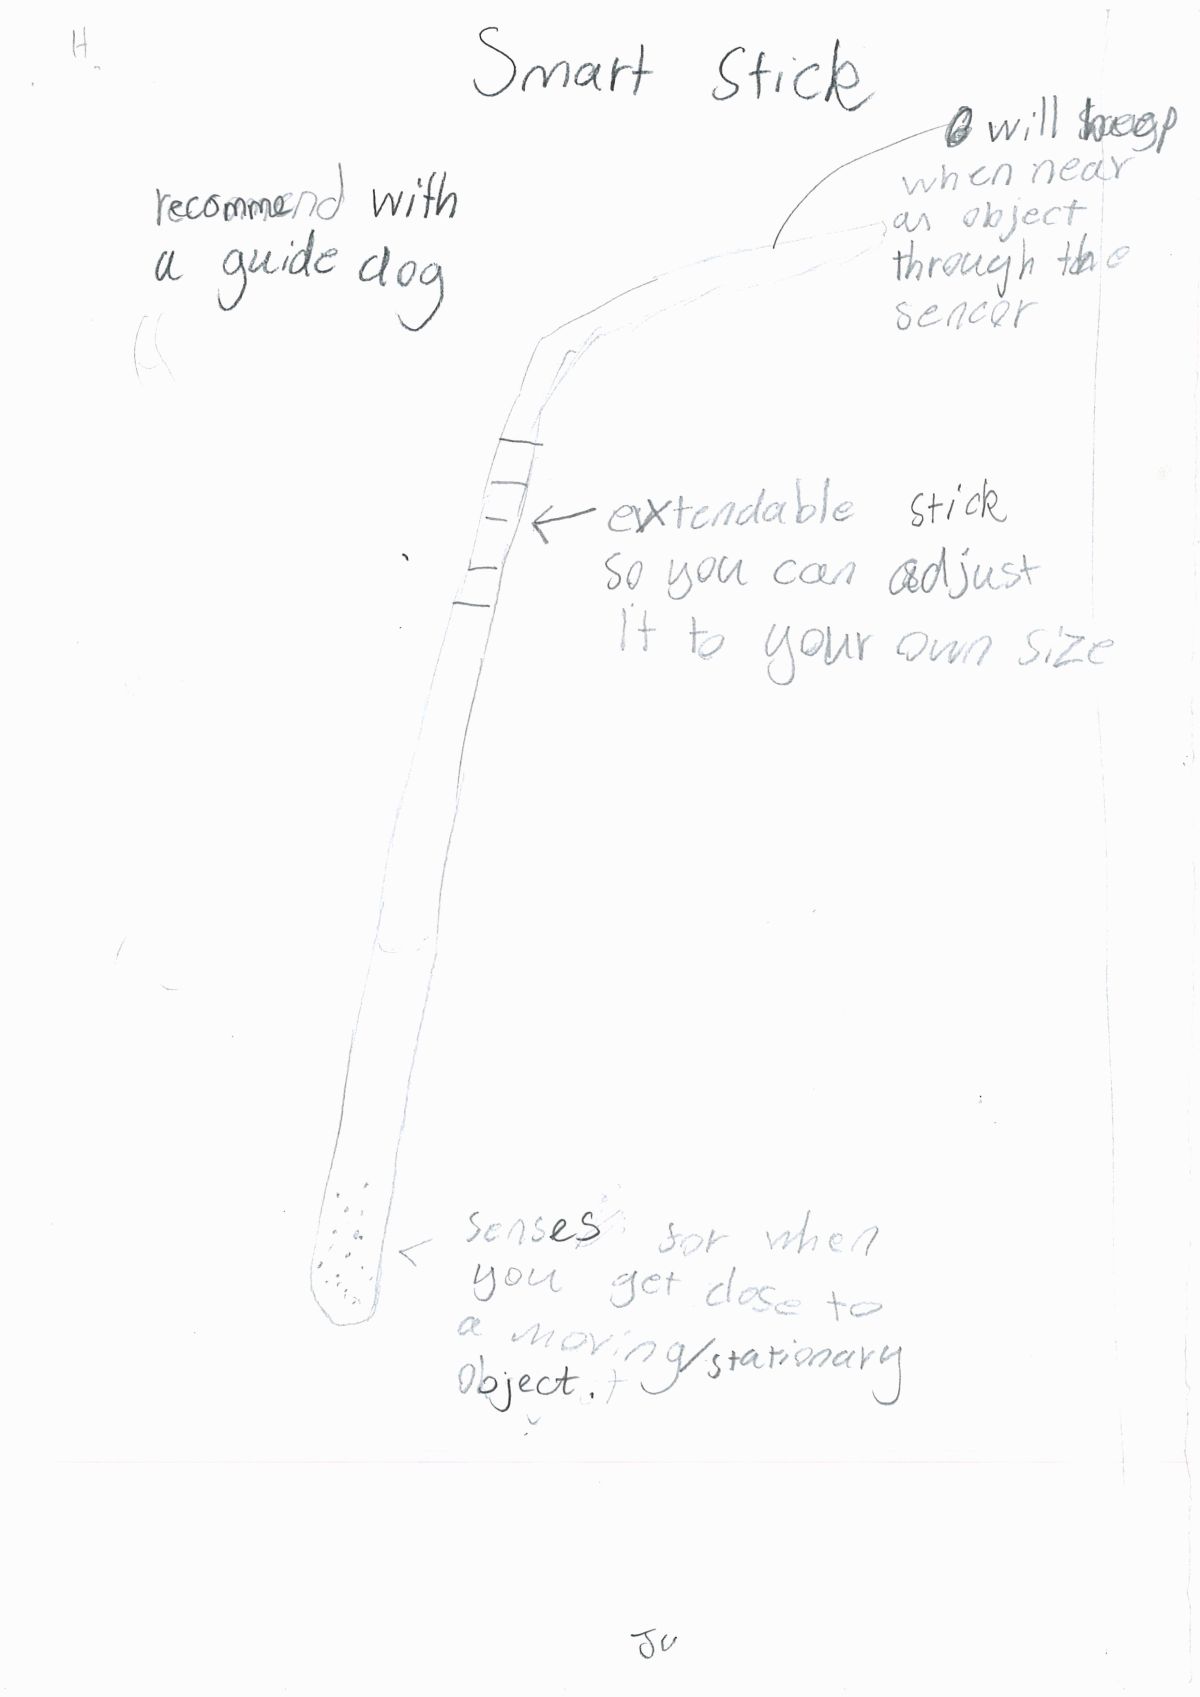 H
Smart Stick
recommend with
a guide dog
will beep
when near
an object
through the
sencor
extendable stick
so you can adjust
it to your own size
senses for when
you get close to
a moving/stationary
object.
Ju